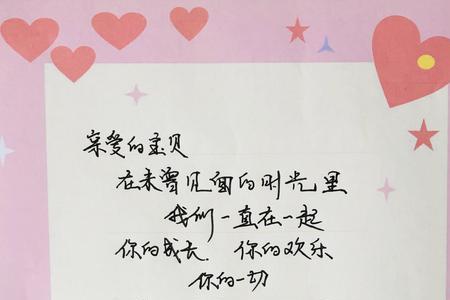 亲爱的宝贝
在未曾见面的时光里
我们一直在一起
你的成长. 你的欢乐
你的一切